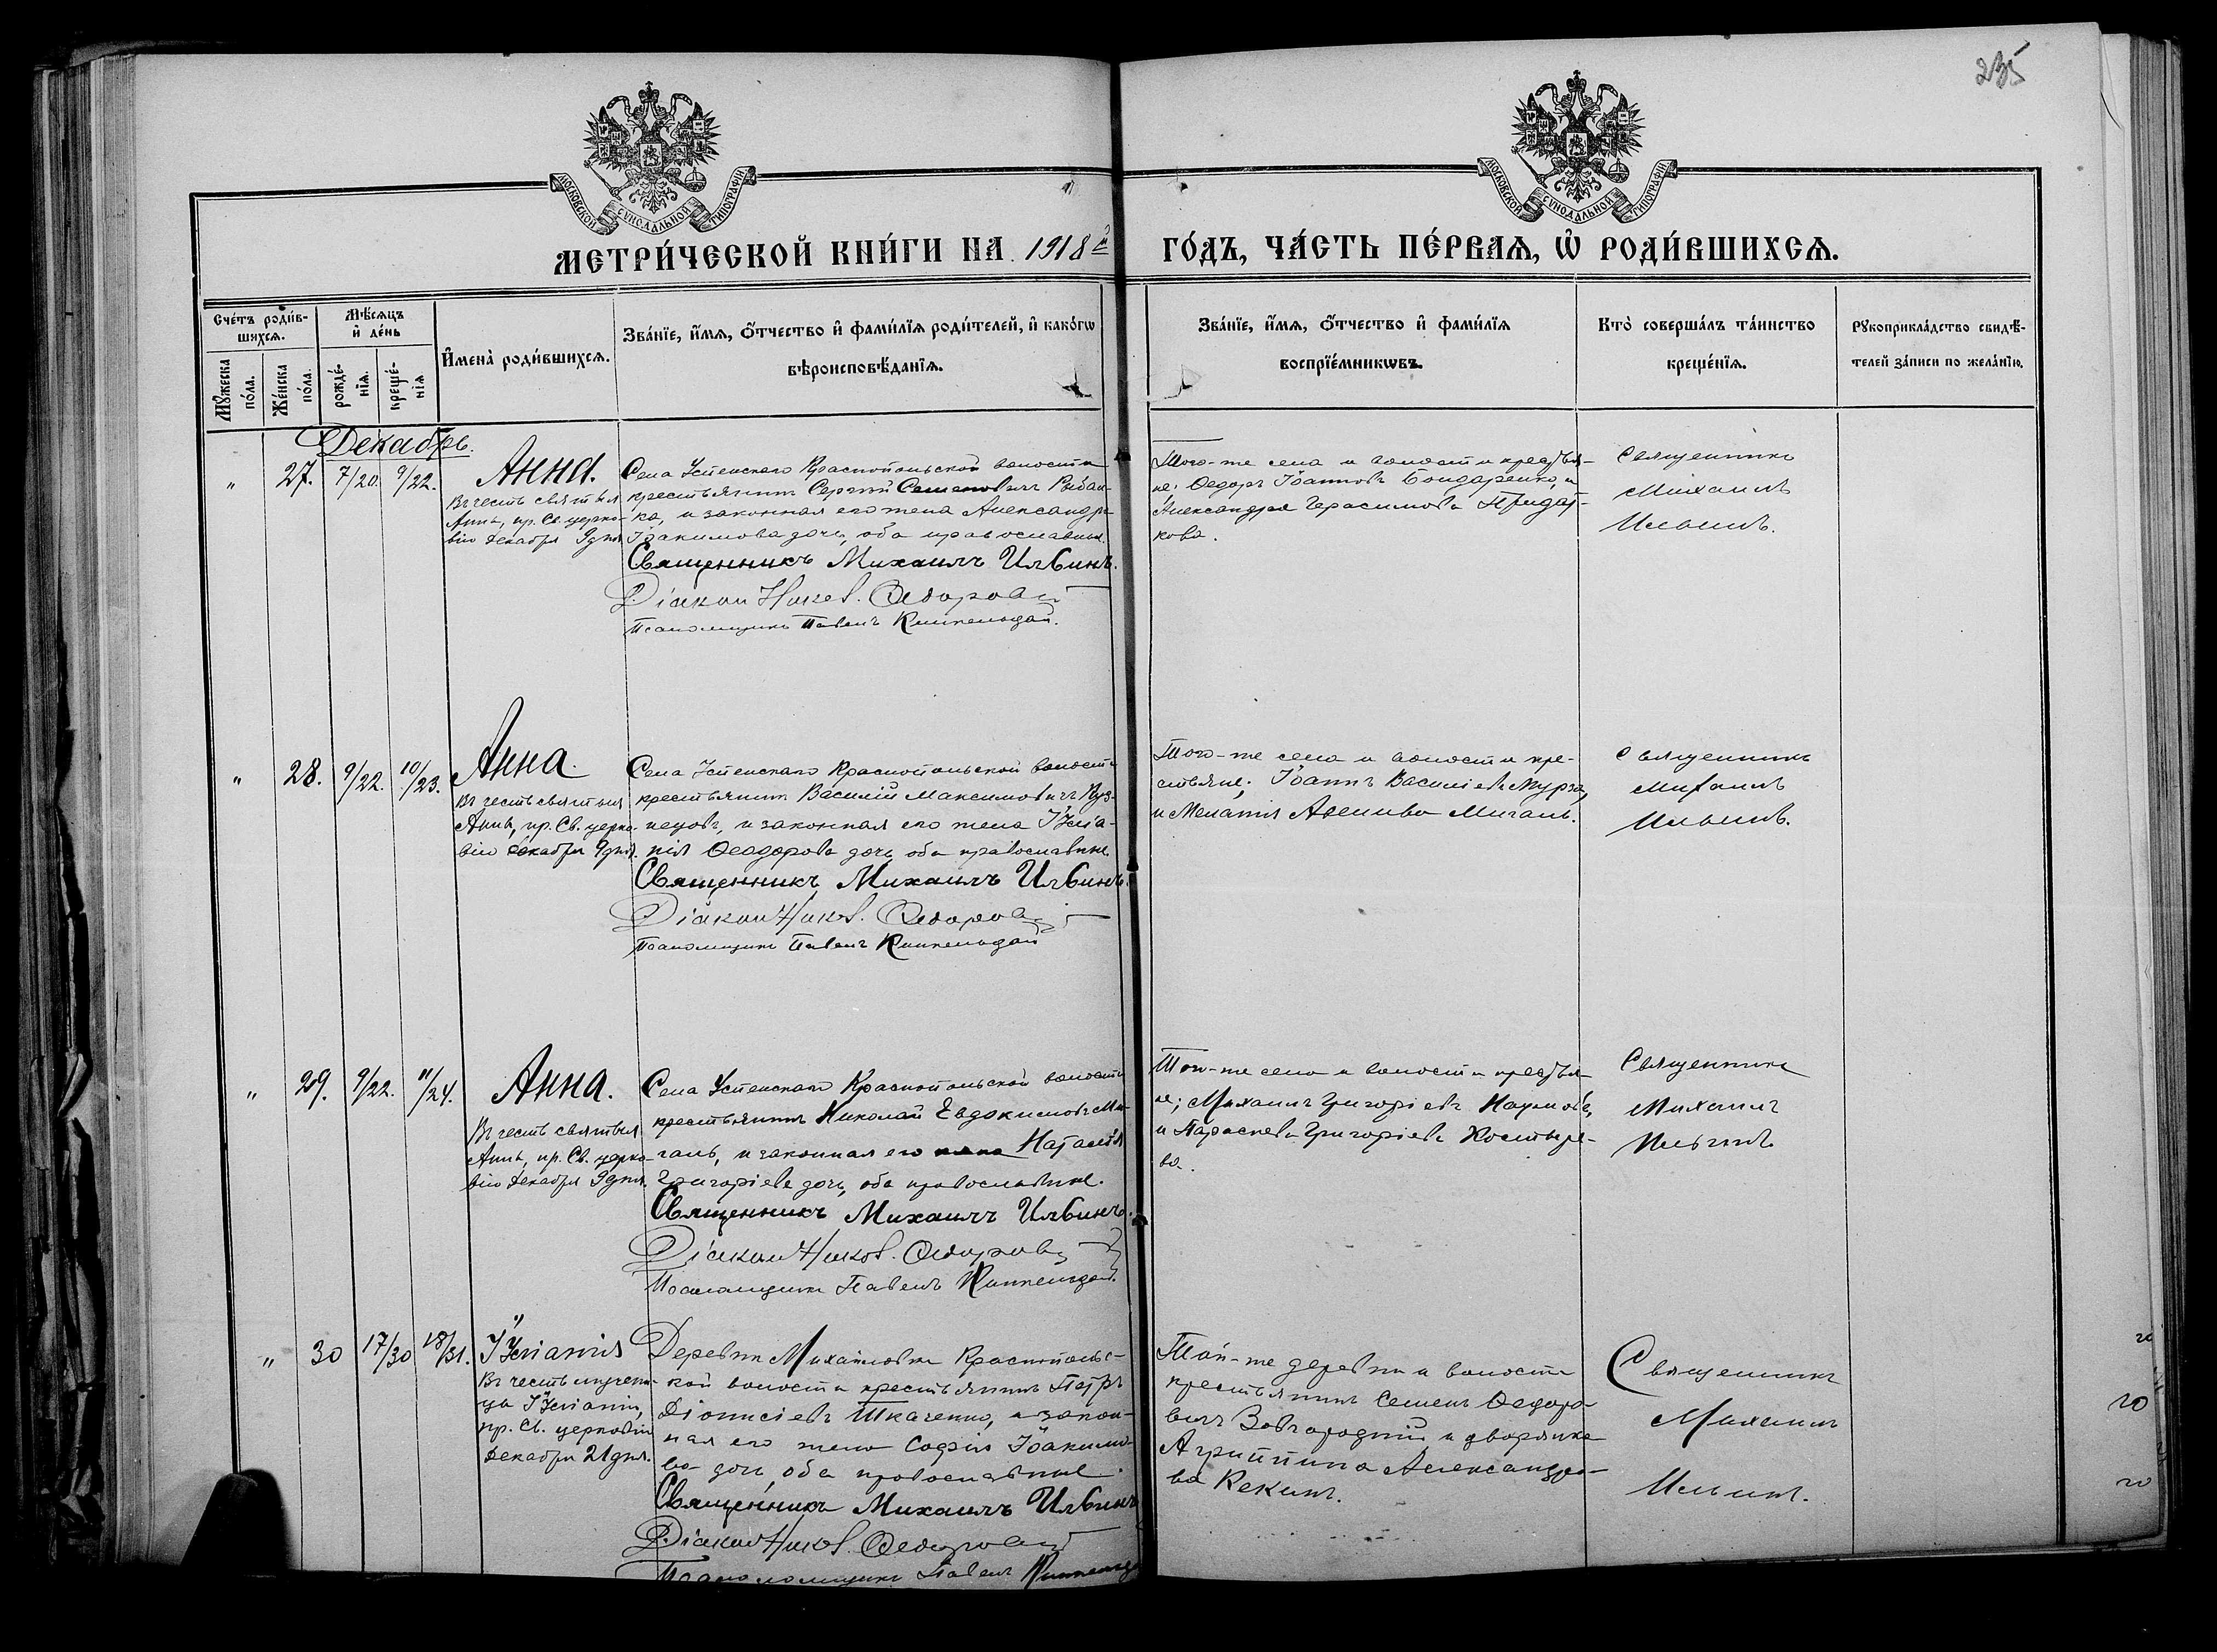 235
МОСКОВСКОЙ СѴНОДАЛЬНОЙ ТИПОГРАФІИ
МОСКОВСКОЙ СѴНОДАЛЬНОЙ ТИПОГРАФІИ
МЕТРИ́ЧЕСКОЙ КНИ́ГИ НА 1918й ГО́ДЪ, ЧА́СТЬ ПЕ́РВАѦ, Ѡ҆ РОДИ́ВШИХСѦ.
Сче́тъ роди́в-
шихсѧ.
Мꙋ́жеска по́ла.
Же́нска по́ла.
Мѣ́сѧцъ и҆ де́нь
рожде́-нїѧ.
креще́-нїѧ
И҆мена̀ роди́вшихсѧ.
Зва́нїе, и҆́мѧ, ѻ҆́тчество и҆ фами́лїѧ роди́телей, и҆ како́гѡ
вѣроисповѣ́данїѧ.
Зва́нїе, и҆́мѧ, ѻ҆́тчество и҆ фами́лїѧ
воспрїе́мникѡвъ.
Кто̀ соверша́лъ та́инство
креще́нїѧ.
Рꙋкоприкла́дство свидѣ́-
телей за́писи по жела́нїю.
Декабрь.
" 27. 7/20. 9/22. Анна.
Въ честь святыя
Анны, пр. Св. церко-
вію декабря 9 дня
Села Успенскаго Краснопольской волости
крестьянинъ Сергій Семеновичъ Рыбал-
ка, и законная его жена Александра
Іоакимова дочь, оба православные.
Священникъ Михаилъ Ильинъ.
Діаконъ Ѳедоровъ
Псаломщикъ Павелъ
Того-же села и волости крестья-
не: Ѳедоръ Іоанновъ Бондаренко, и
Александра Герасимова Придат-
кова.
Священникъ
Михаилъ
Ильинъ.
" 28. 9/22. 10/23. Анна.
Въ честь святыя
Анны, пр. Св. церко-
вію декабря 9 дня.
Села Успенскаго Краснопольской волости
крестьянинъ Василій Максимовичъ Куз-
нецовъ, и законная его жена Іуліа-
нія Ѳеодорова дочь, оба православные.
Священникъ Михаилъ Ильинъ.
Діаконъ Ѳедоровъ
Псаломщикъ Павелъ
Того-же села и волости кре-
стьяне; Іоаннъ Василіевъ Мурза,
и Меланія Мигаль.
Священникъ
Михаилъ
Ильинъ.
" 29. 9/22. 11/24. Анна.
Въ честь святыя
Анны, пр. Св. церко-
вію декабря 9 дня.
Села Успенскаго Краснопольской волости
крестьянинъ Николай Евдокимовъ Ми-
галь, и законная его жена Наталія
Григоріева дочь, оба православные.
Священникъ Михаилъ Ильинъ.
Діаконъ Ѳедоровъ
Псаломщикъ Павелъ
Того-же села и волости крестья-
не; Михаилъ Григоріевъ Наумовъ,
и Параскева Григоріева Костыре-
ва.
Священникъ
Михаилъ
Ильинъ
" 30 17/30 18/31. Іуліанія
Въ честь мучени-
цы Іуліаніи,
пр. Св. церковію
декабря 21 дня.
Деревни Михайловки Краснопольс-
кой волости крестьянинъ Петръ
Діонисіевъ Ткаченко, и закон-
ная его жена Софія Іоакимо-
ва дочь, оба православные.
Священникъ Михаилъ Ильинъ
Діаконъ Ѳедоровъ
Псаломщикъ Павелъ
Той-же деревни и волости
крестьянинъ Семенъ Ѳедоро-
вичъ Завгородній и дворянка
Агриппина Александро-
ва Рекинъ.
Священникъ
Михаилъ
Ильинъ.